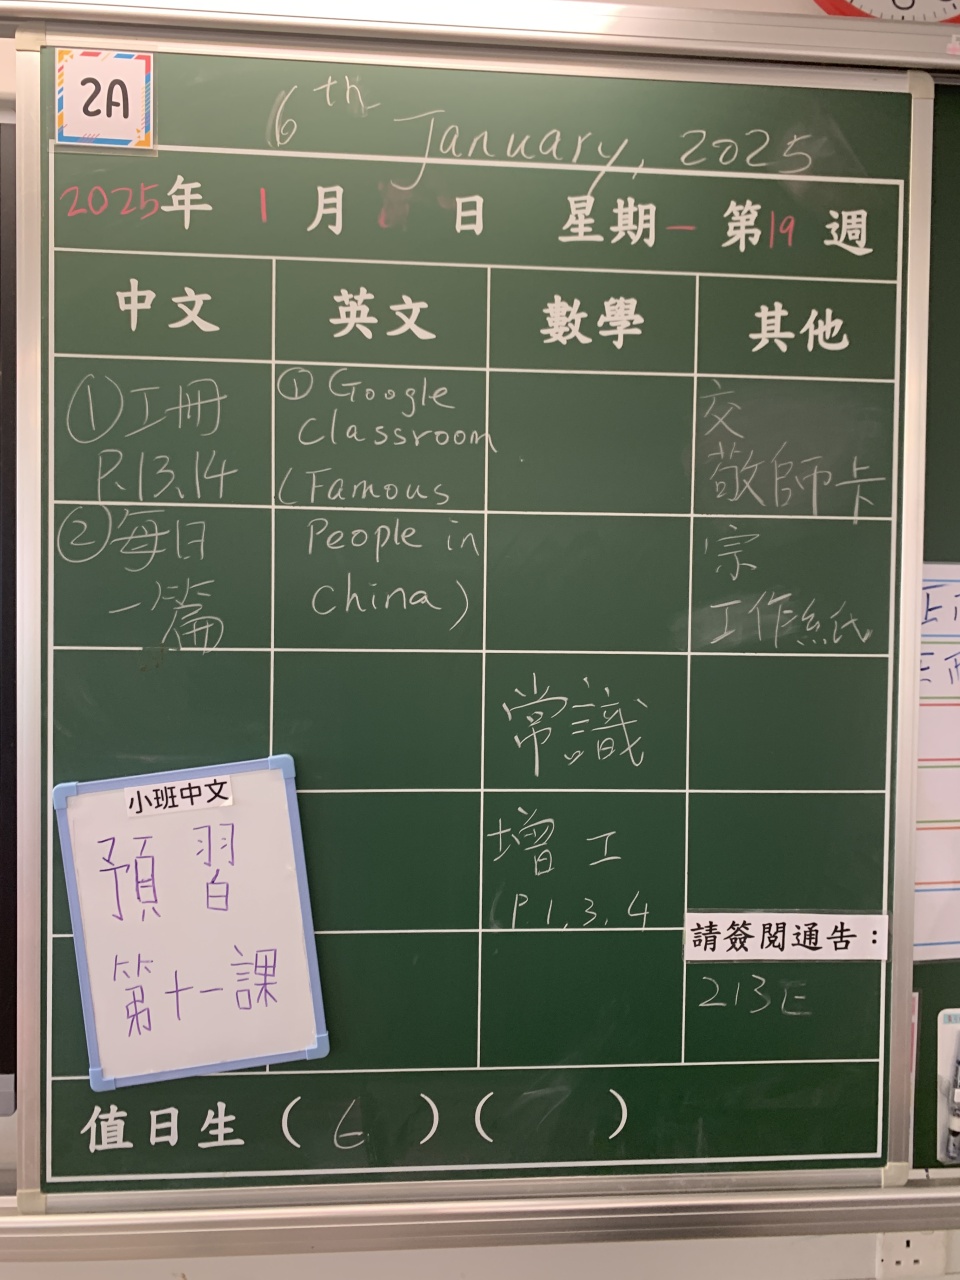 2A
6th January, 2025
2025年 1月 日 星期一 第19週
中文 英文 數學 其他
①工冊
P.13、14
②每日
一篇
① Google
Classroom
(Famous
People in
China)
常識
增工
P.1、3、4
交
敬師卡
宗
工作紙
請簽閱通告：
213E
小班中文
預習
第十一課
值日生（6）（ ）